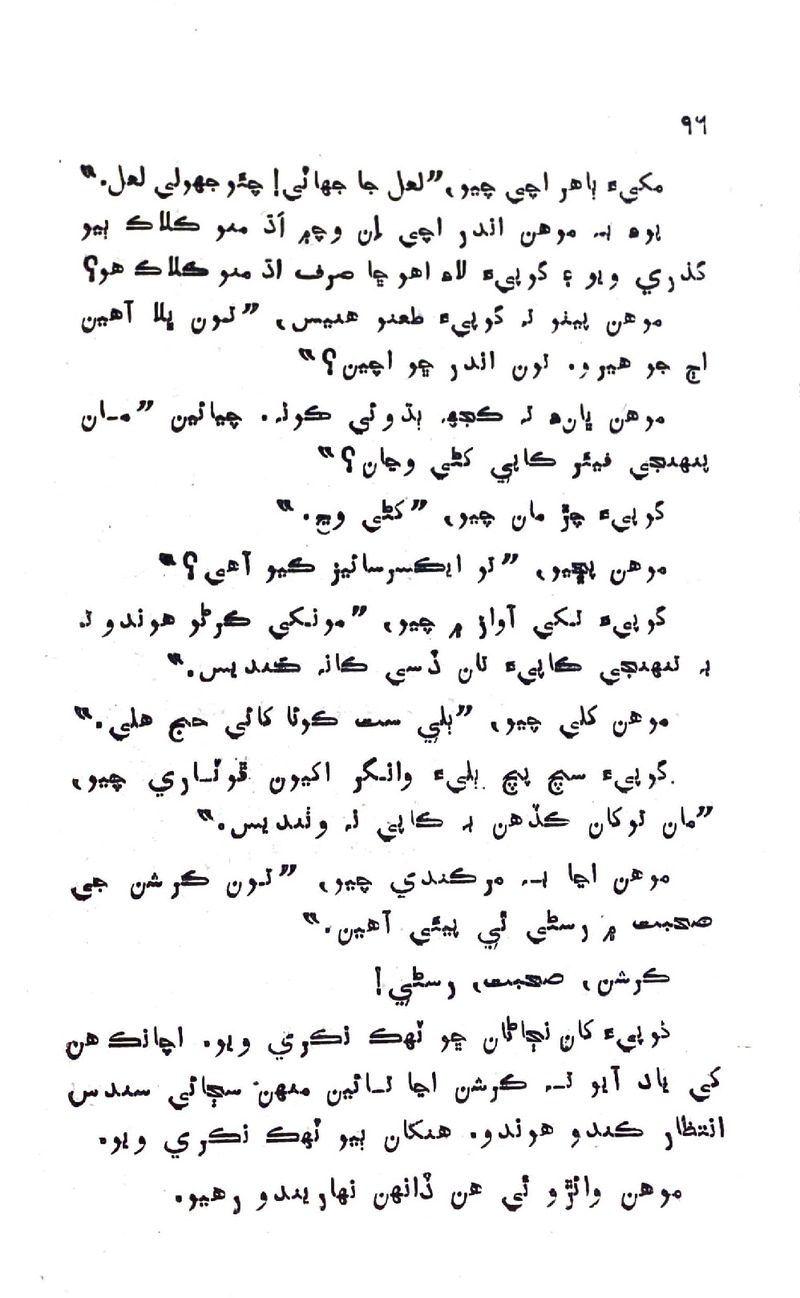 ٩٦
مکيءَ ٻاهر اچي چيو، ”لعل جا جهائي! چئو جهولي لعل.“
پوءِ بہ موهن اندر اچي اِن وچ۾ اَڌ منو ڪلاڪ ٻيو
گذري ويو ۽ گوپيءَ لاءِ اهو ڇا صرف اڌ منو ڪلاڪ هو؟
موهن پيٺو تہ گوپيءَ طعنو هنيس، ”تون ڀلا آهين
اڄ جو هيرو. تون اندر ڇو اچين؟“
موهن ڀانءِ تہ ڪجهہ ٻڌوئي ڪونہ. چيائين ”مان
پنهنجي فيئر ڪاپي کڻي وڃان؟“
گوپيءَ چڙ مان چيو، ”کڻي وڃ.“
موهن پڇيو، ”تو ايڪسرسائيز ڪيو آهي؟“
گوپيءَ تکي آواز ۾ چيو، ”مونکي ڪرڻو هوندو تہ
بہ تنهنجي ڪاپيءَ تان ڏسي ڪانہ ڪنديس.“
موهن کلي چيو، ”ٻلي ست ڪوئا کائي حج هلي.“
گوپيءَ سچ پچ ٻليءَ وانگر اکيون ڦوٽاري چيو،
”مان توکان ڪڏهن بہ ڪاپي نہ وٺنديس.“
موهن اڃا بہ مرڪندي چيو، ”تون ڪرشن جي
صحبت ۾ رسڻي ٿي پيئي آهين.“
ڪرشن، صحبت، رسڻي!
گوپيءَ کان نڄاڻان ڇو ٽهڪ نڪري ويو. اچانڪ هن
کي ياد آيو تہ ڪرشن اڃا تائين منهن سڄائي سندس
انتظار ڪندو هوندو. هنکان ٻيو ٽهڪ نڪري ويو.
موهن وائڙو ٿي هن ڏانهن نهاريندو رهيو.